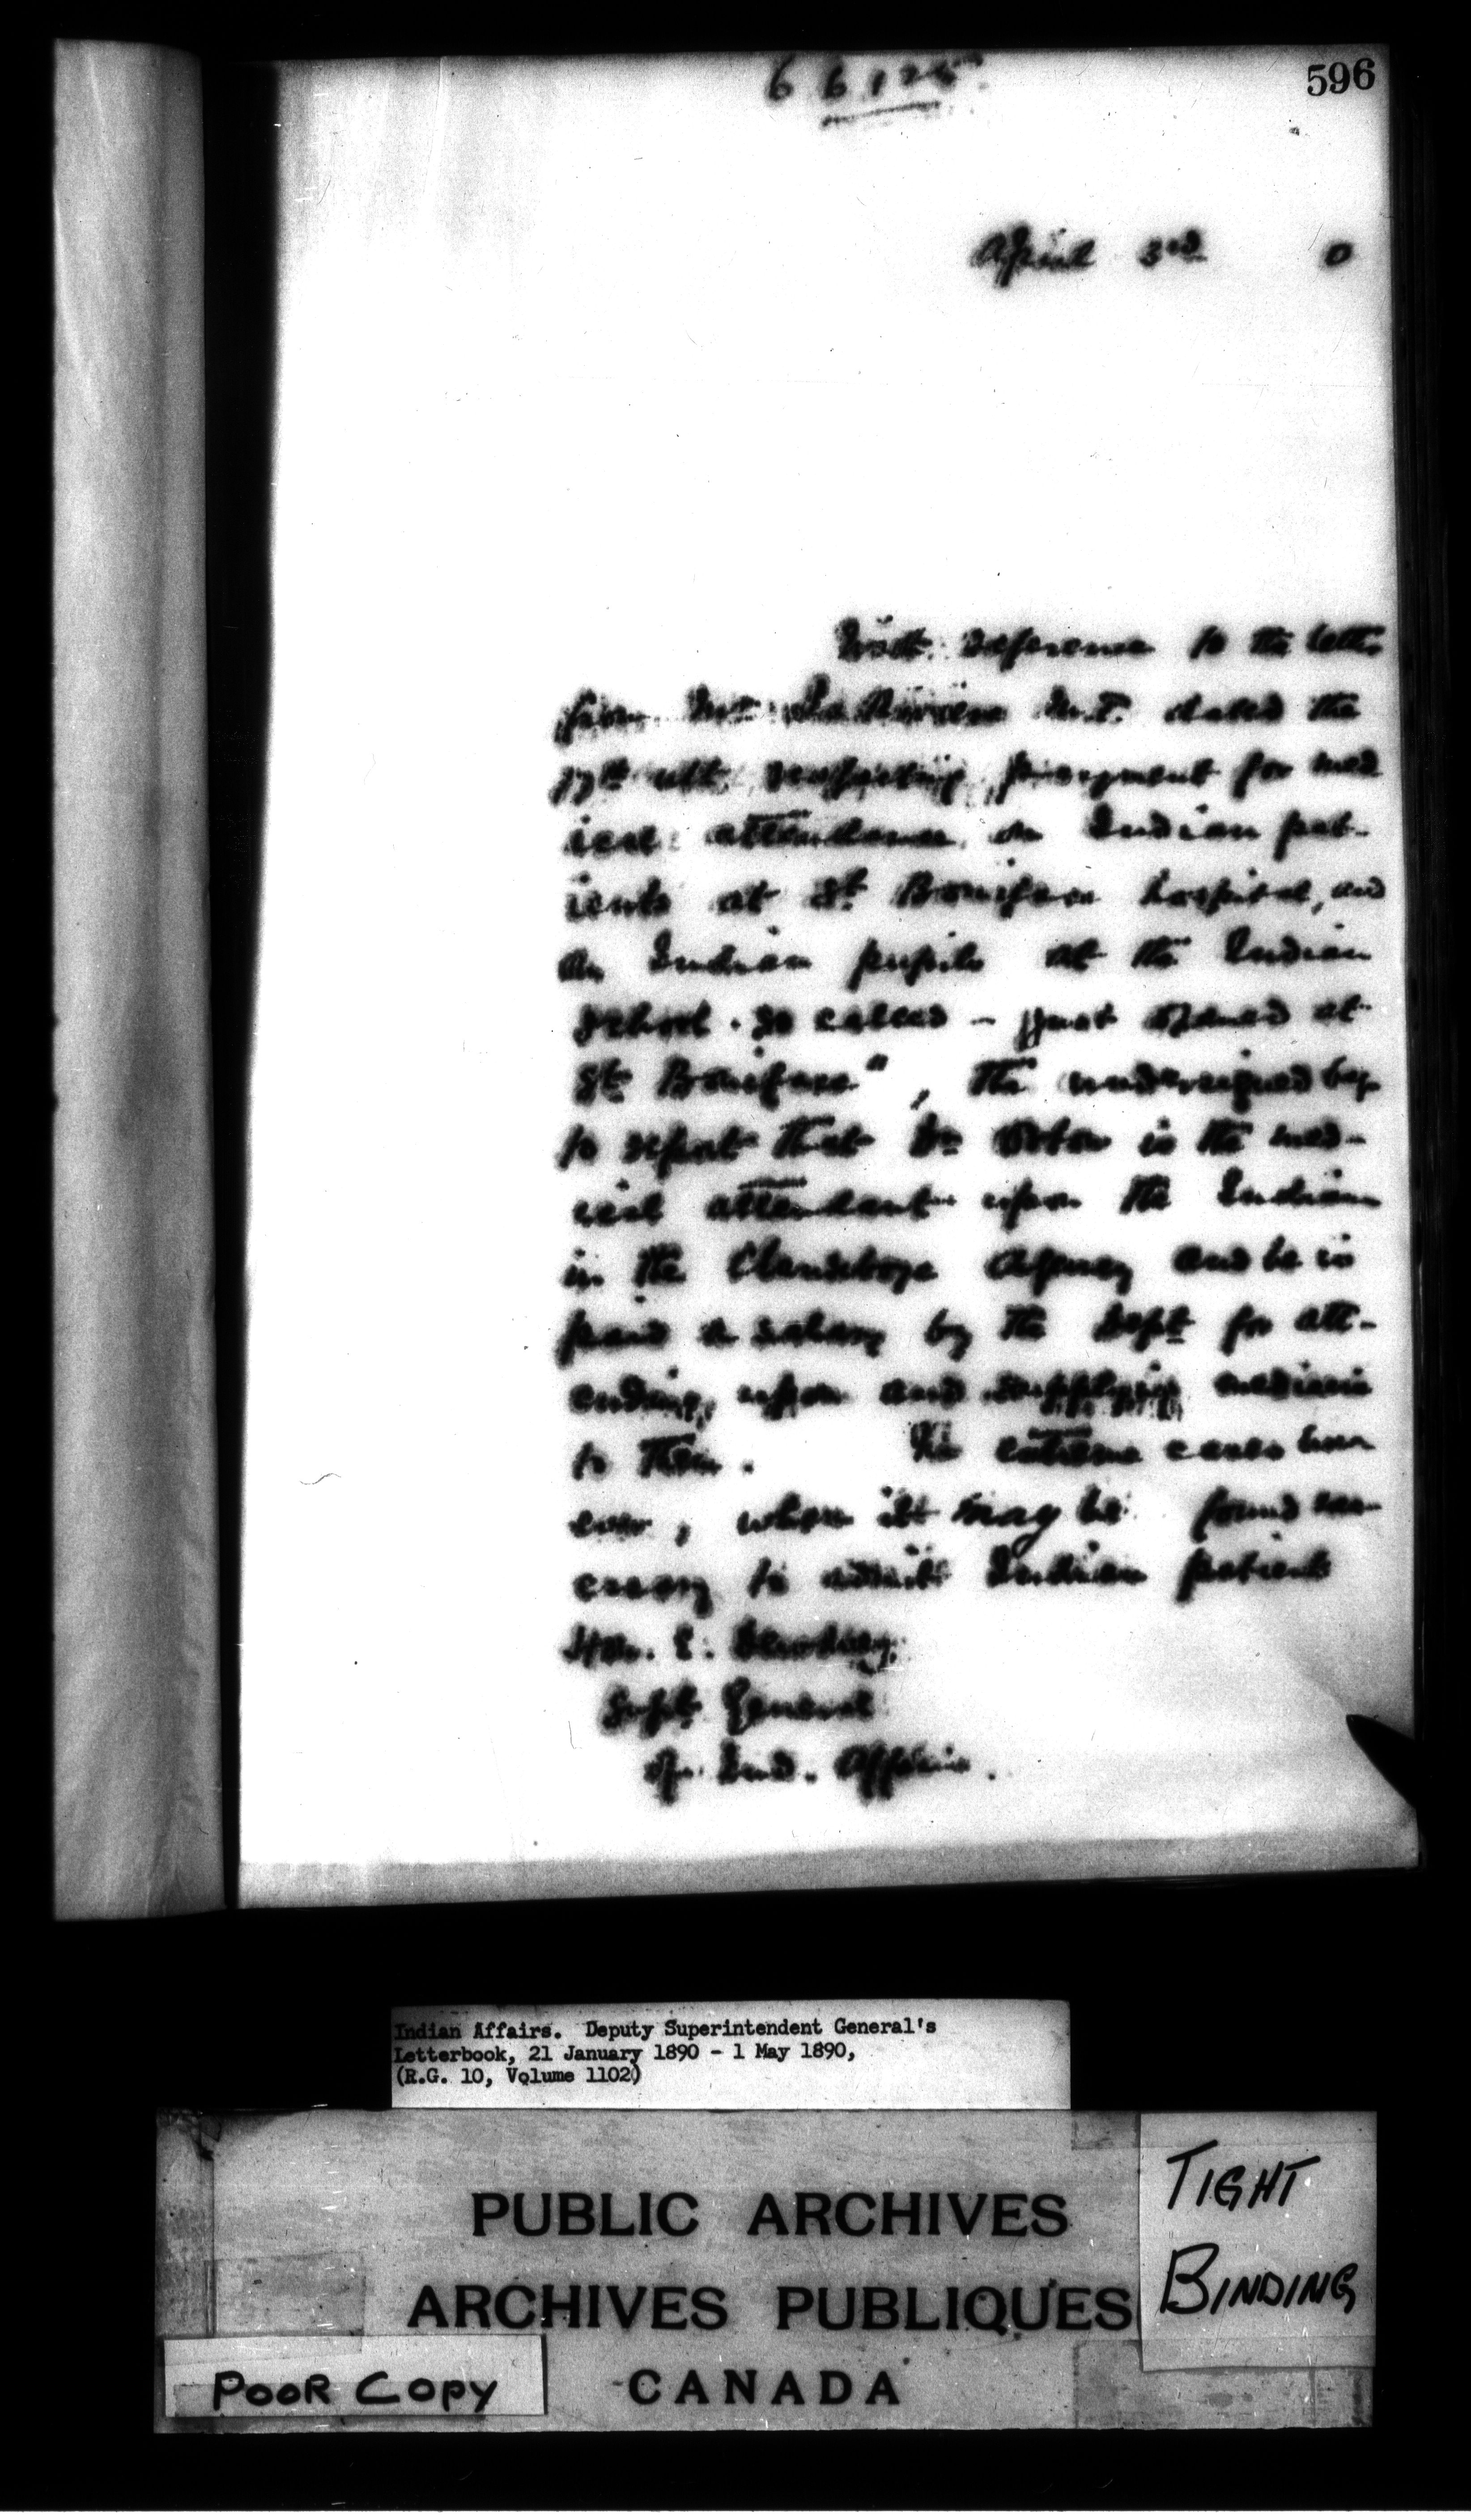 66125
596
April 3rd 0
With reference to the letter
from Mr. La Riviere M.P. dated the
17th ult. respecting payment for med
ical attendance on Indian pat-
ients at St Boniface hospital, and
on Indian pupils at the Indian
School so called - just opened at
St. Boniface", the undersigned begs
to report that Dr Orton is the med-
ical attendant upon the Indians
in the Clandeboye Agency and he is
paid a salary by the Dept for att-
ending upon and supplying medicine
to them. In extreme cases how
ever, when it may be found nec
essary to admit Indian patients
Hon. E. Dewdney,
Supt General
of Ind. Affairs.
Indian Affairs. Deputy Superintendent General's
Letterbook, 21 January 1890 - 1 May 1890,
(R.G. 10, Volume 1102)
PUBLIC ARCHIVES
ARCHIVES PUBLIQUES
CANADA
TIGHT
BINDING
POOR COPY